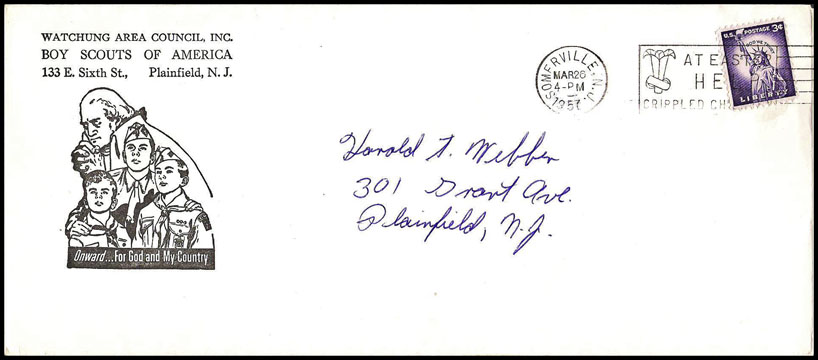 WATCHUNG AREA COUNCIL, INC.
BOY SCOUTS OF AMERICA
133 E. Sixth St., Plainfield, N. J.
Onward...For God and My Country
SOMERVILLE, N.J.
MAR 26
4-PM
1957
AT EASTER
HE
CRIPPLED CH
U.S. POSTAGE 3¢
IN GOD WE TRUST
LIBERTY
Harold T. Webber
301 Grant Ave.
Plainfield, N.J.